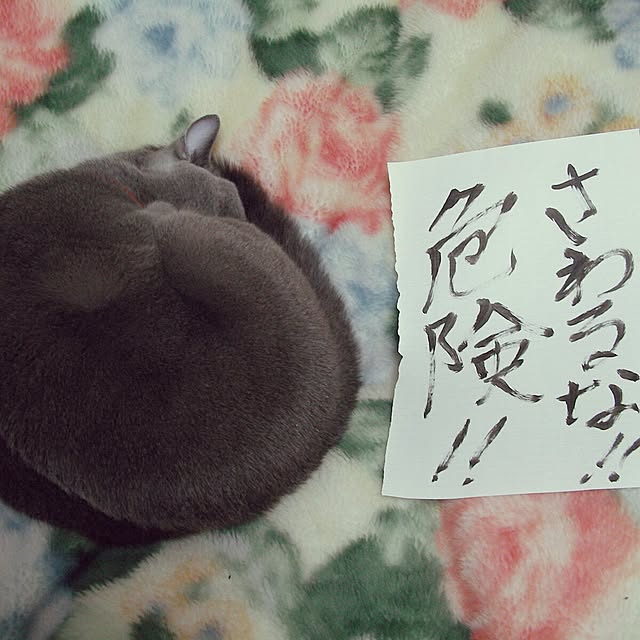 さわるな!!
危険!!